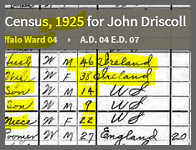 Census, 1925 for John Driscoll
ffalo Ward 04 › A.D. 04 E.D. 07
W M 46 Ireland
Wife W F 38 Ireland
Son W M 14 US
Son W M 9 US
Niece W F 22 US
Roomer W M 27 England 20